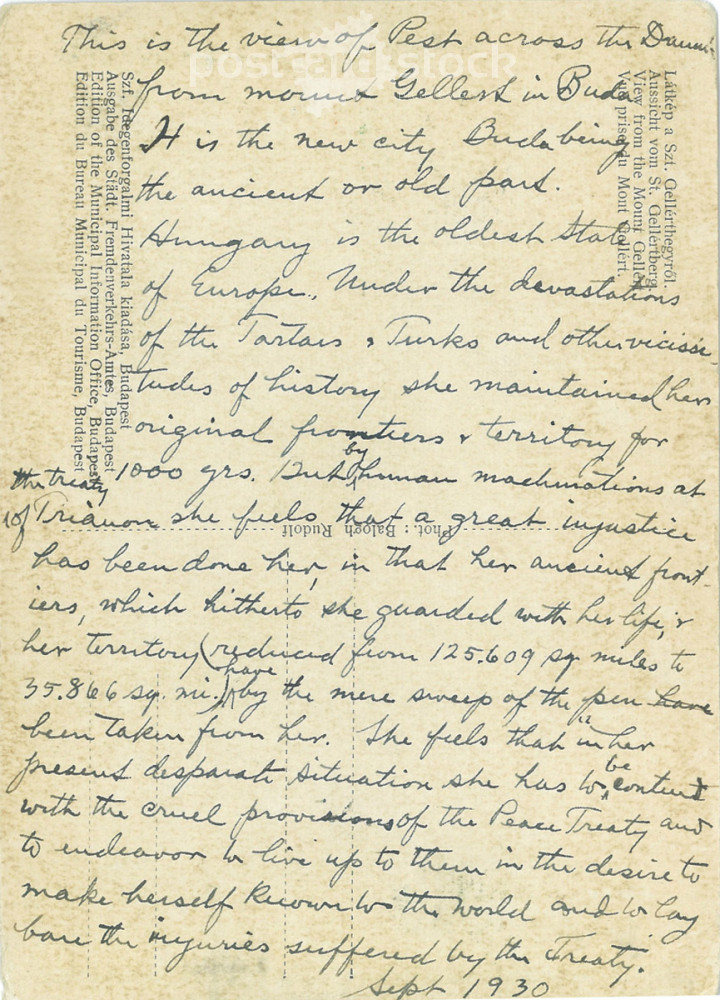 This is the view of Pest across the Danu-
from mount Gellert in Buda
It is the new city Buda being
the ancient or old part.
Hungary is the oldest State
of Europe. Under the devastations
of the Tartars & Turks and other vicissi-
tudes of history she maintained her
original frontiers & territory for
1000 yrs. But by human machinations at
the treaty
of Trianon she feels that a great injustice
has been done her, in that her ancient front-
iers, which hitherto she guarded with her life, &
her territory (reduced from 125.609 sq miles to
35.866 sq. mi.) have by the mere sweep of the pen have
been taken from her. She feels that "in her
present desparate situation she has to be content
with the cruel provisions of the Peace Treaty and
to endeavor to live up to them in the desire to
make herself known to the world and to lay
bare the injuries suffered by the Treaty.
Sept 1930
Látkép a Szt. Gellérthegyről.
Aussicht vom St. Gellértberg.
View from the Mount Gellért.
Vue prise du Mont Gellért.
Szf. Idegenforgalmi Hivatala kiadása, Budapest
Ausgabe des Städt. Fremdenverkehrs-Amtes, Budapest
Edition of the Municipal Information Office, Budapest
Edition du Bureau Municipal du Tourisme, Budapest
Phot: Balogh Rudolf